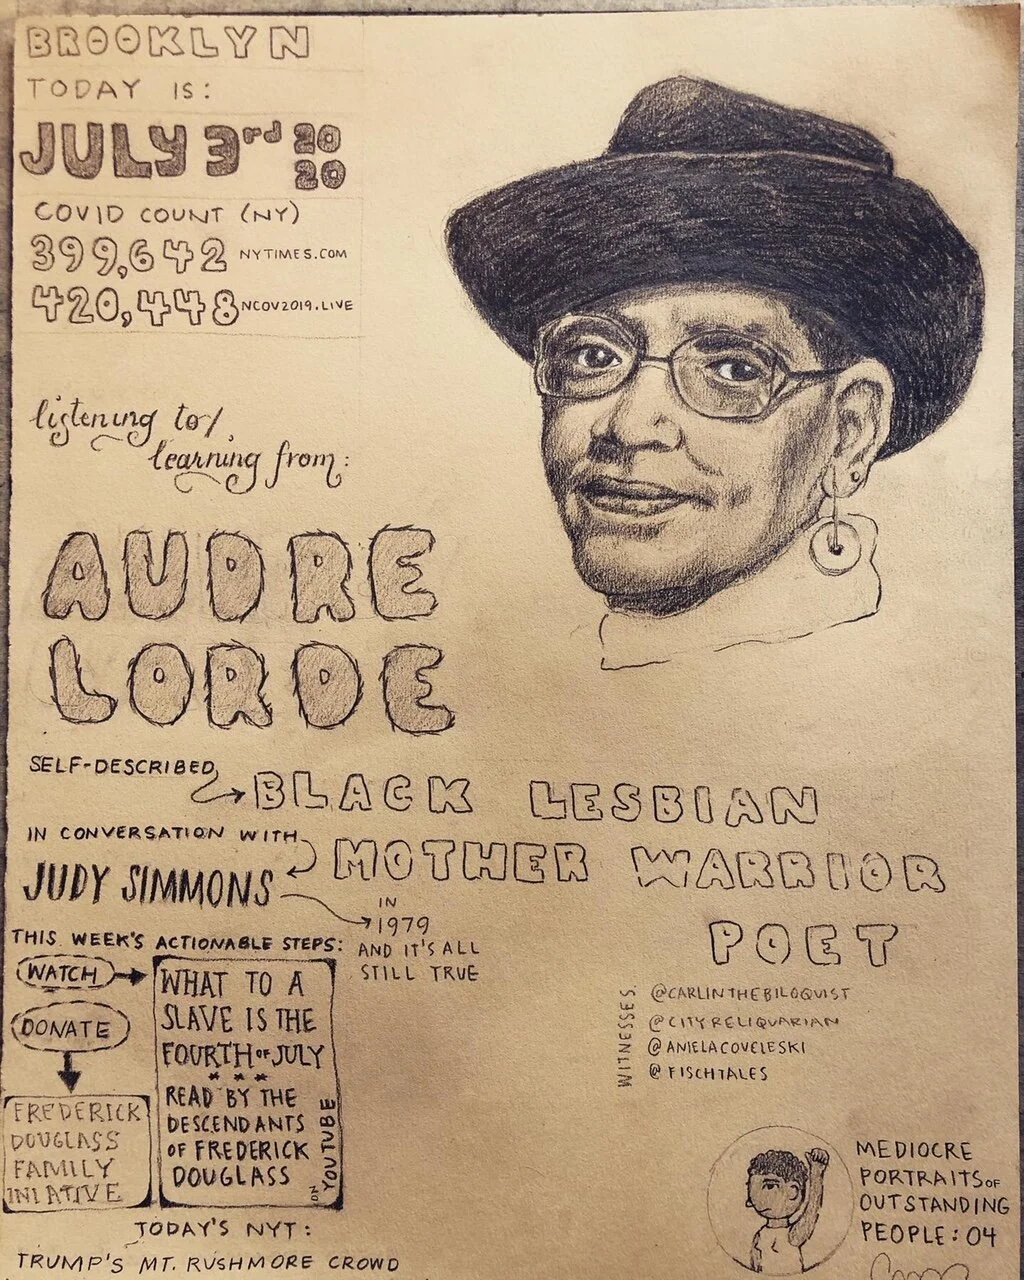 BROOKLYN
TODAY IS:
JULY 3rd 2020
COVID COUNT (NY)
399,642 NYTIMES.COM
420,448 NCOV2019.LIVE
listening to/
learning from:
AUDRE
LORDE
SELF-DESCRIBED
BLACK LESBIAN
MOTHER WARRIOR
POET
IN CONVERSATION WITH
JUDY SIMMONS
IN
1979
AND IT'S ALL
STILL TRUE
THIS WEEK'S ACTIONABLE STEPS:
WATCH
WHAT TO A
SLAVE IS THE
FOURTH OF JULY
READ BY THE
DESCENDANTS
OF FREDERICK
DOUGLASS
ON YOUTUBE
DONATE
FREDERICK
DOUGLASS
FAMILY
INIATIVE
WITNESSES
@CARLINTHEBILOQUIST
@CITYRELIQUARIAN
@ANIELACOVELESKI
@FISCHTALES
TODAY'S NYT:
TRUMP'S MT. RUSHMORE CROWD
MEDIOCRE
PORTRAITS OF
OUTSTANDING
PEOPLE: 04